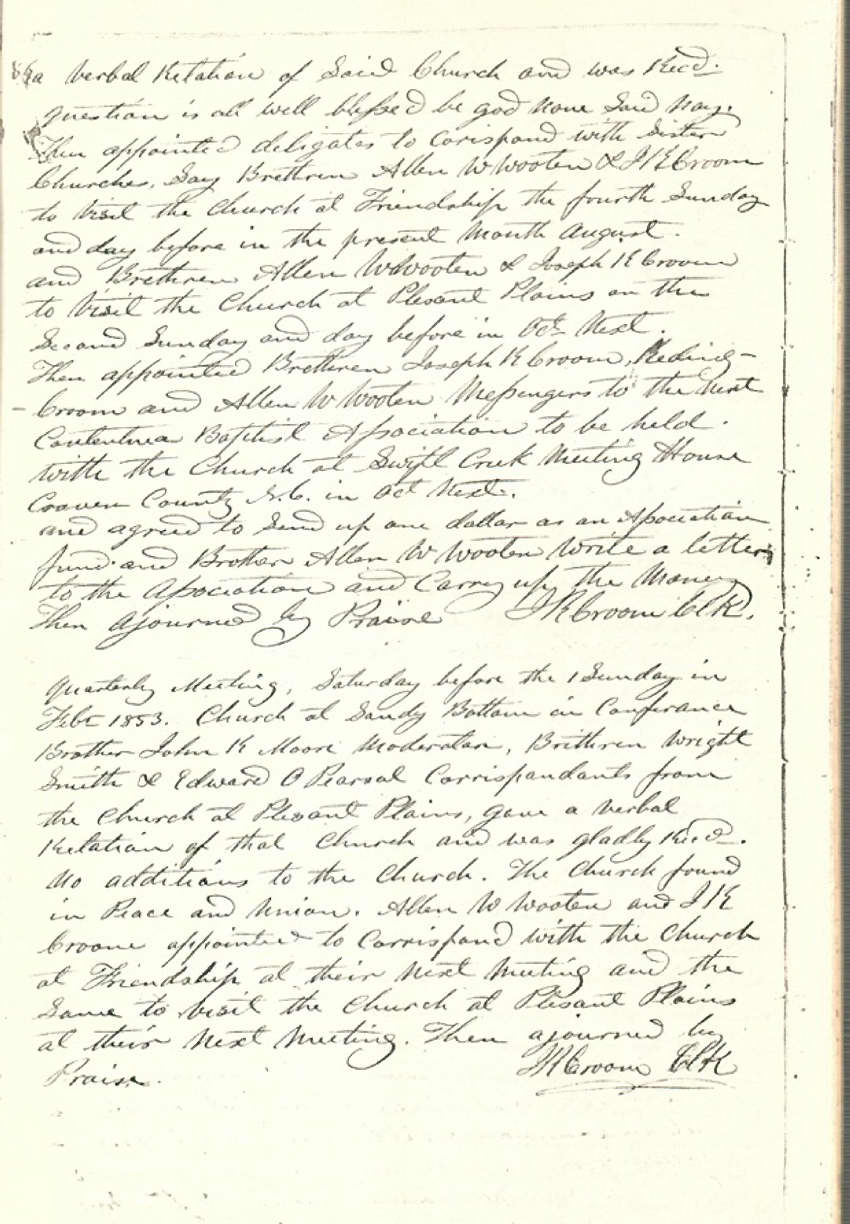 a verbal Relation of Said Church and was Recd.
question is all well blessed be god none Said nay.
Then appointed deligates to corispond with Sister
Churches. Say Brethren Allen W Wooten & J K Croom
to visit the Church at Friendship the fourth Sunday
and day before in the present month August.
and Brethren Allen W Wooten & Joseph K Croom
to Visit the Church at Plesant Plains on the
Second Sunday and day before in Oct Next.
Then appointed Brethren Joseph K Croom, Reding-
- Croom and Allen W Wooten Messengers to the next
Contentnea Baptist Association to be held.
with the Church at Swift Creek Meeting House
Craven County N.C. in Oct Next.
and agreed to Send up one dollar as an Association
fund and Brother Allen W Wooten Write a letter
to the Association and Carry up the Money
Then ajourned by Praise J K Croom Clk.
Quarterly Meeting, Saturday before the 1 Sunday in
Feb 1853. Church at Sandy Bottom in Conferance
Brother John K Moore Moderator, Brithren Wright
Smith & Edward O Pearsal Corrispondants from
the Church at Plesant Plains, gave a verbal
Relation of that Church and was gladly Recd.
no additions to the Church. The Church found
in Peace and Union. Allen W Wooten and J K
Croom appointed to Corrispond with the Church
at Friendship at their next meeting and the
Same to visit the Church at Plesant Plains
at their Next Meeting. Then ajourned by
Praise. J K Croom Clk